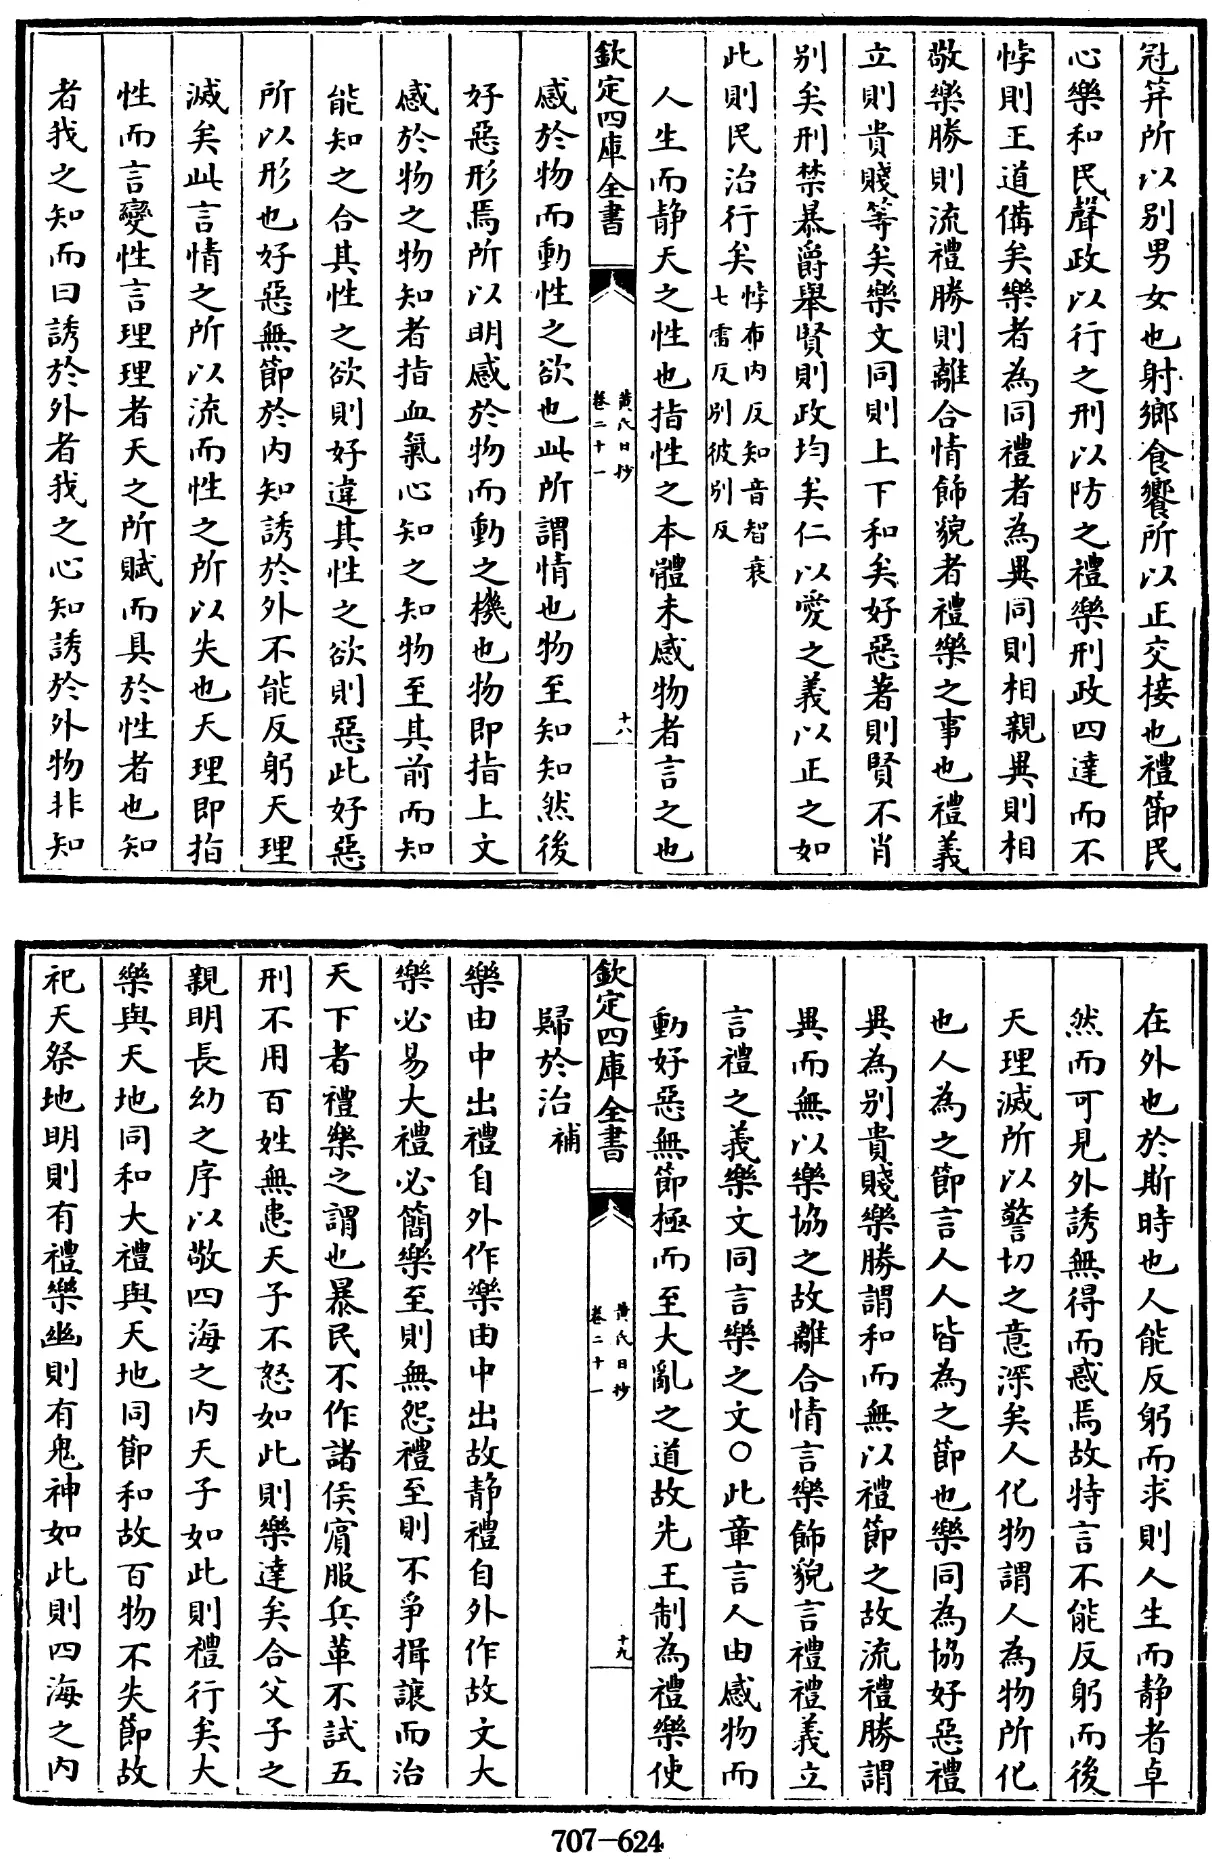 冠笄所以别男女也射鄉食饗所以正交接也禮節民
心樂和民聲政以行之刑以防之禮樂刑政四達而不
悖則王道備矣樂者為同禮者為異同則相親異則相
敬樂勝則流禮勝則離合情飾貌者禮樂之事也禮義
立則貴賤等矣樂文同則上下和矣好惡著則賢不肖
别矣刑禁暴爵舉賢則政均矣仁以愛之義以正之如
此則民治行矣悖布内反知音智衰
七雷反别彼别反
人生而静天之性也指性之本體未感物者言之也
欽定四庫全書
黄氏日抄
卷二十一
十八
感於物而動性之欲也此所謂情也物至知知然後
好惡形焉所以明感於物而動之機也物即指上文
感於物之物知者指血氣心知之知物至其前而知
能知之合其性之欲則好違其性之欲則惡此好惡
所以形也好惡無節於内知誘於外不能反躬天理
滅矣此言情之所以流而性之所以失也天理即指
性而言變性言理理者天之所賦而具於性者也知
者我之知而曰誘於外者我之心知誘於外物非知
在外也於斯時也人能反躬而求則人生而静者卓
然而可見外誘無得而惑焉故特言不能反躬而後
天理滅所以警切之意深矣人化物謂人為物所化
也人為之節言人人皆為之節也樂同為協好惡禮
異為别貴賤樂勝謂和而無以禮節之故流禮勝謂
異而無以樂協之故離合情言樂飾貌言禮禮義立
言禮之義樂文同言樂之文○此章言人由感物而
動好惡無節極而至大亂之道故先王制為禮樂使
欽定四庫全書
黄氏日抄
卷二十一
十九
歸於治補
樂由中出禮自外作樂由中出故静禮自外作故文大
樂必易大禮必簡樂至則無怨禮至則不爭揖讓而治
天下者禮樂之謂也暴民不作諸侯賓服兵革不試五
刑不用百姓無患天子不怒如此則樂達矣合父子之
親明長幼之序以敬四海之内天子如此則禮行矣大
樂與天地同和大禮與天地同節和故百物不失節故
祀天祭地明則有禮樂幽則有鬼神如此則四海之内
707-624